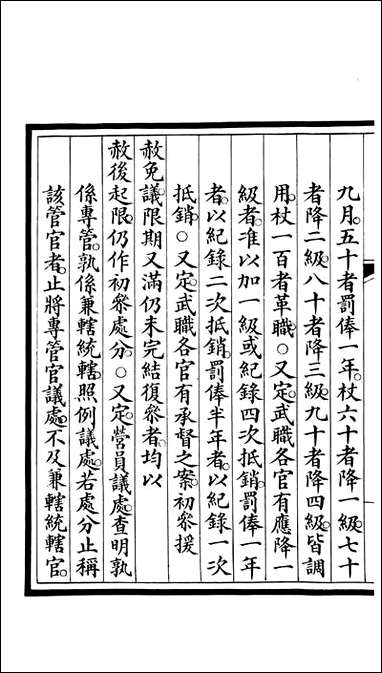 九月。五十者罰俸一年。杖六十者降一級。七十
者降二級。八十者降三級。九十者降四級。皆調
用。杖一百者革職。○又定。武職各官有應降一
級者。准以加一級或紀錄四次抵銷。罰俸一年
者。以紀錄二次抵銷。罰俸半年者。以紀錄一次
抵銷。○又定。武職各官有承督之案。初參援
赦免議。限期又滿仍未完結復參者。均以
赦後起限。仍作初參處分。○又定。營員議處。查明孰
係專管。孰係兼轄統轄。照例議處。若處分止稱
該管官者。止將專管官議處。不及兼轄統轄官。